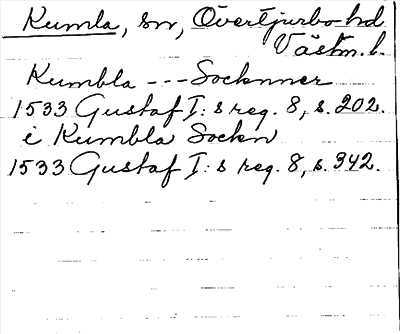 Kumla, sn, Övertjurbo hd
Västm. l.
Kumbla --- Socknner
1533 Gustaf I: s reg. 8, s. 202.
i Kumbla Sockn
1533 Gustaf I: s reg. 8, s. 342.